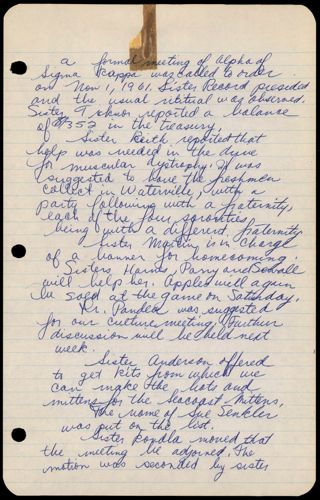 a formal meeting of Alpha of
Sigma Kappa was called to order
on Nov 1, 1961. Sister Record presided
and the usual ritual was observed.
Sister reported a balance
of $352 in the treasury.
Sister Keith reported that
help was needed in the drive
for muscular dystrophy. It was
suggested to have the freshmen
collect in Waterville, with a
party following with a fraternity,
each of the four sororities
being with a different fraternity
Sister Martin is in charge
of a banner for homecoming.
Sisters Harris, Parry and Sewall
will help her. Apples will again
be sold at the game on Saturday.
Mr. Pandea was suggested
for our culture meeting. Further
discussion will be held next
week.
Sister Anderson offered
to get kits from which we
can make the hats and
mittens for the Seacoast Mittens.
The name of Sue Senkler
was put on the list.
Sister Kondla moved that
the meeting be adjorned. The
motion was seconded by sister